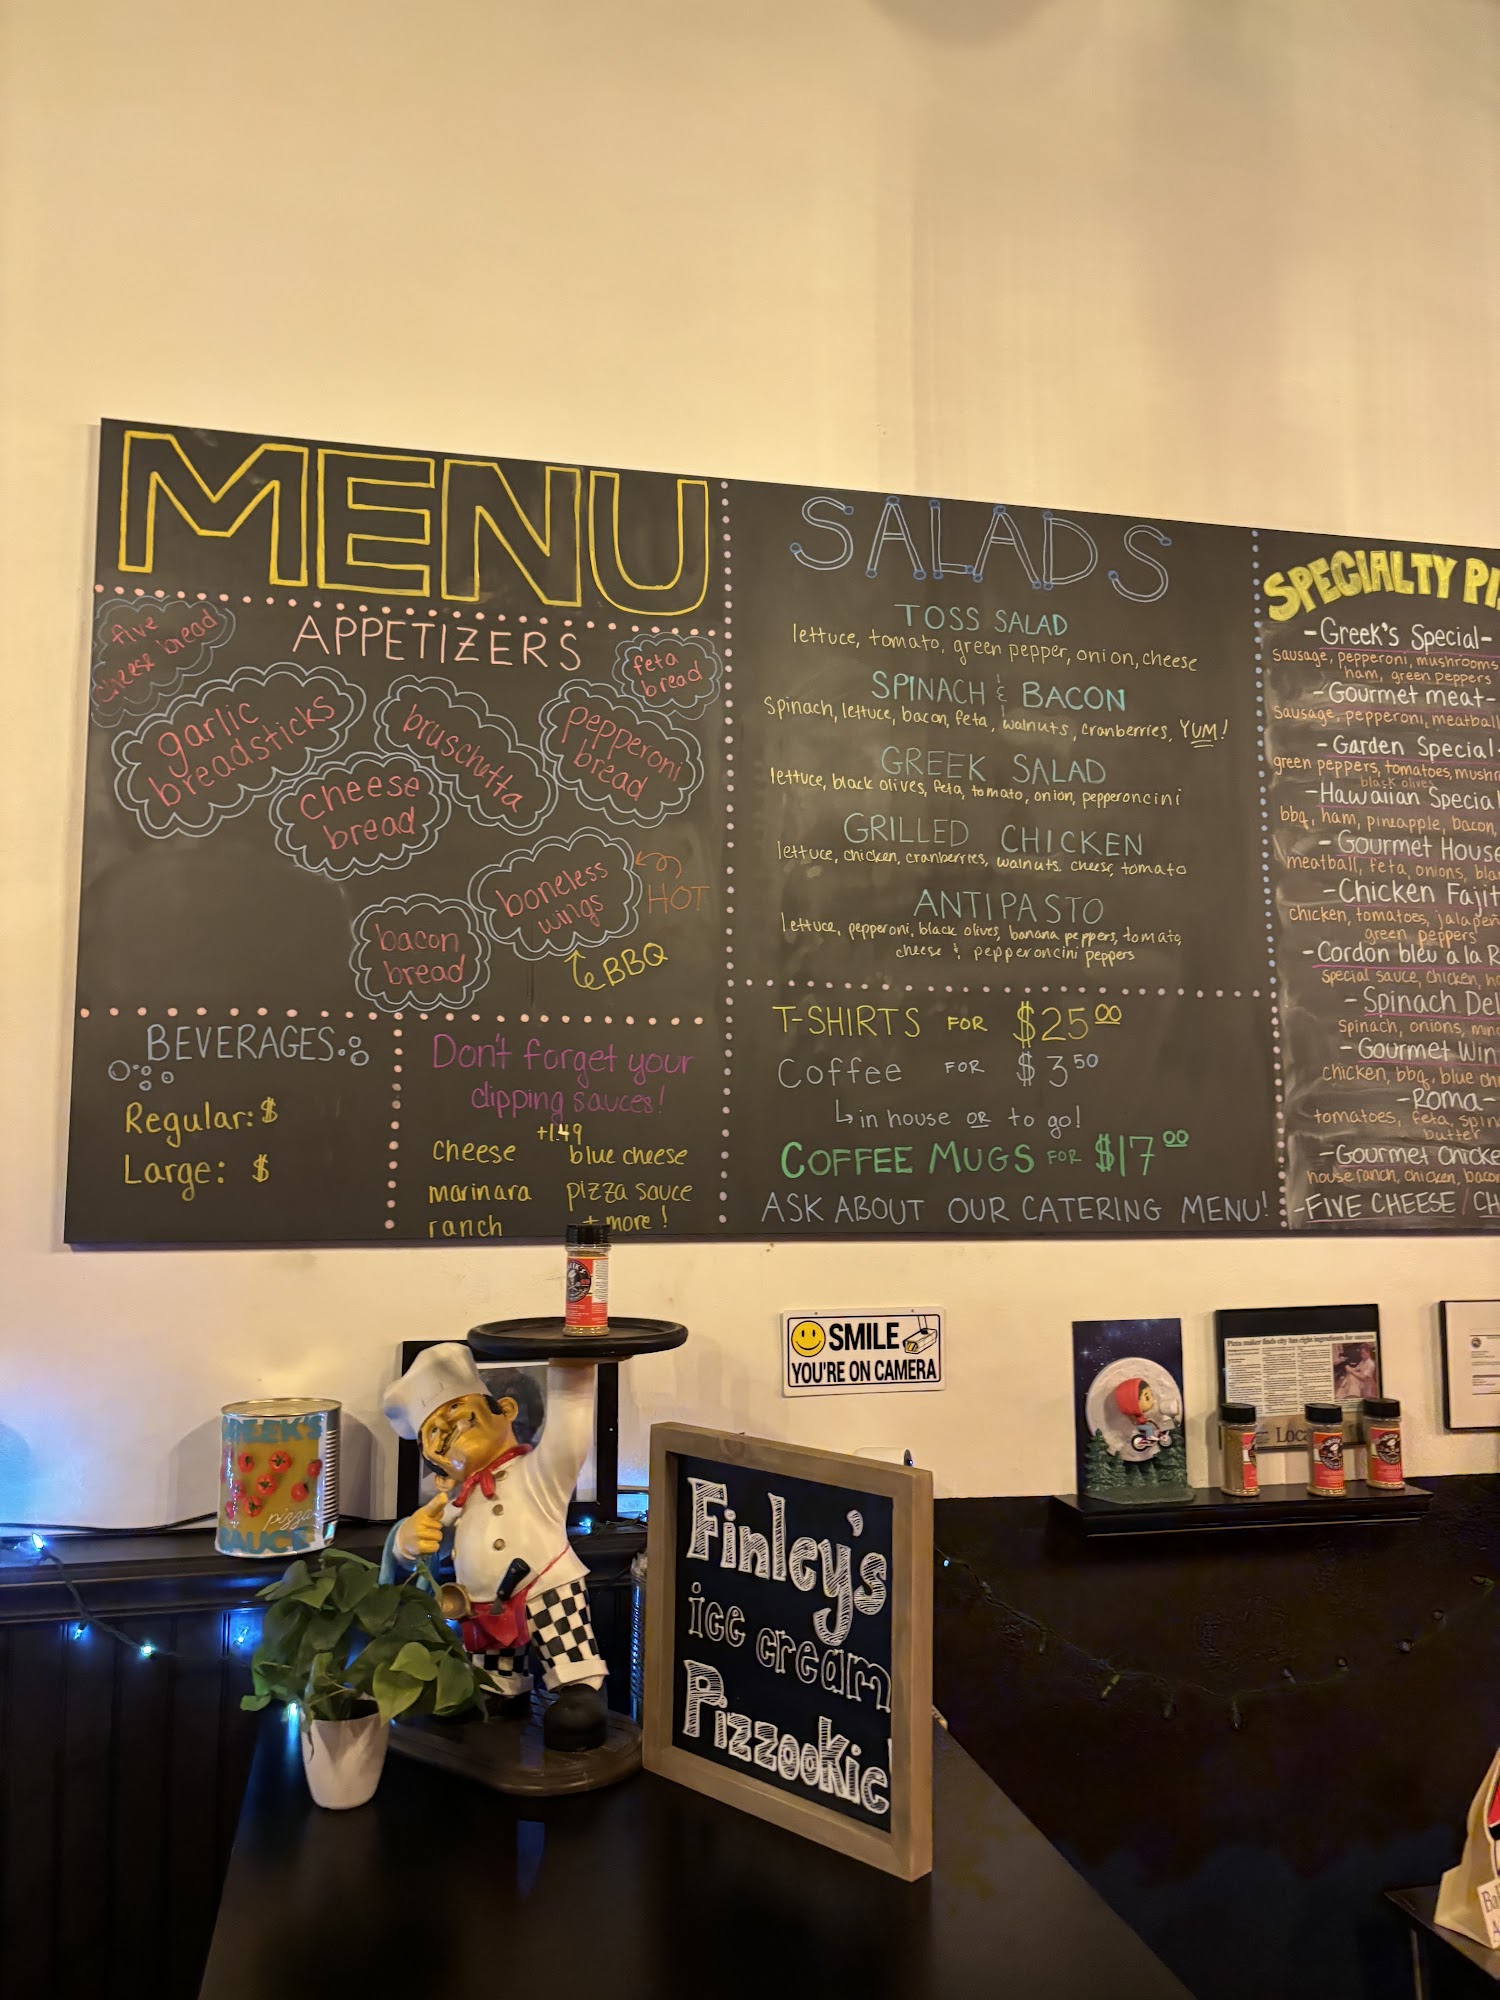 MENU
APPETIZERS
five
cheese bread
feta
bread
garlic
breadsticks
bruschetta
pepperoni
bread
cheese
bread
boneless
wings
HOT
BBQ
bacon
bread
BEVERAGES
Regular: $
Large: $
Don't forget your
dipping sauces!
+1.49
cheese
blue cheese
marinara
pizza sauce
ranch
+ more!
SALADS
TOSS SALAD
lettuce, tomato, green pepper, onion, cheese
SPINACH & BACON
Spinach, lettuce, bacon, feta, walnuts, cranberries, YUM!
GREEK SALAD
lettuce, black olives, feta, tomato, onion, pepperoncini
GRILLED CHICKEN
lettuce, chicken, cranberries, walnuts, cheese, tomato
ANTIPASTO
lettuce, pepperoni, black olives, banana peppers, tomato,
cheese & pepperoncini peppers
T-SHIRTS FOR $25.00
Coffee FOR $3.50
↳ in house OR to go!
COFFEE MUGS FOR $17.00
ASK ABOUT OUR CATERING MENU!
SPECIALTY
-Greek's Special-
sausage, pepperoni, mushrooms
ham, green peppers
-Gourmet meat-
sausage, pepperoni, meatball
-Garden Special-
green peppers, tomatoes,
black olives
-Hawaiian Special
bbq, ham, pineapple, bacon,
-Gourmet House
meatball, feta, onions,
-Chicken
chicken, tomatoes,
green peppers
-Cordon bleu a la
special sauce, chicken,
-Spinach
Spinach, onions,
-Gourmet
chicken, bbq, blue
-Roma-
tomatoes, feta,
butter
-Gourmet
house ranch, chicken,
-FIVE CHEESE /
SMILE
YOU'RE ON CAMERA
GREEK'S
pizza
SAUCE
Pizza maker finds city has right ingredients for success
Finley's
ice cream
Pizzookie